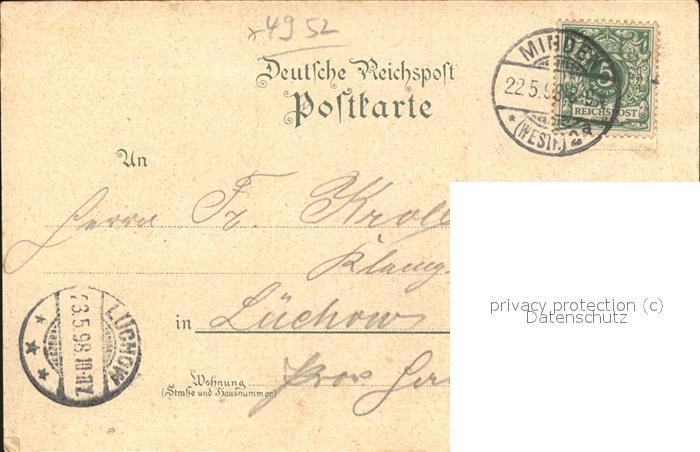 4952
Deutsche Reichspost
Postkarte
MINDEN
22.5.98
(WESTF.) 2a
5
REICHSPOST
An
Herrn Fr. Kroll
in Lüchow
LÜCHOW
23.5.98.10-11V.
Wohnung
(Straße und Hausnummer)
Prov Ha
privacy protection (c)
Datenschutz